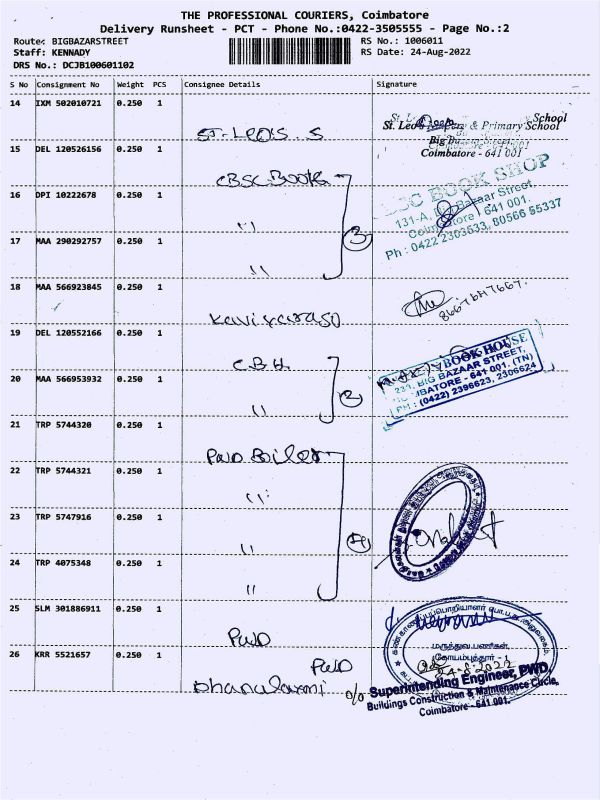 THE PROFESSIONAL COURIERS, Coimbatore
Delivery Runsheet - PCT - Phone No.:0422-3505555 - Page No.:2
Route: BIGBAZARSTREET RS No.: 1006011
Staff: KENNADY RS Date: 24-Aug-2022
DRS No.: DCJB100601102
S No Consignment No Weight PCS Consignee Details Signature
14 IXM 502010721 0.250 1
ST. LEO'S. S
School
St. Leo's & Primary School
Big Bazaar Street,
Coimbatore - 641 001
15 DEL 120526156 0.250 1
CBSC Books
BOOK SHOP
131-A, Big Bazaar Street,
Coimbatore - 641 001.
Ph : 0422 2303633, 80566 55337
16 DPI 10222678 0.250 1
"
3
17 MAA 290292757 0.250 1
"
18 MAA 566923845 0.250 1
Kaviyarasg
19 DEL 120552166 0.250 1
C.B.H.
BOOK HOUSE
231, BIG BAZAAR STREET,
COIMBATORE - 641 001. (TN)
PH : (0422) 2396623, 2306624
20 MAA 566953932 0.250 1
"
2
21 TRP 5744320 0.250 1
PWD Boiler
22 TRP 5744321 0.250 1
"
23 TRP 5747916 0.250 1
"
4
24 TRP 4075348 0.250 1
"
25 SLM 301886911 0.250 1
PWD
மருத்துவ பணிகள்,
கோயம்புத்தூர் -
26 KRR 5521657 0.250 1
PWD
Dhanalaxmi
24-8-2022
o/o Superintending Engineer, PWD,
Buildings Construction & Maintenance Circle,
Coimbatore - 641 001.